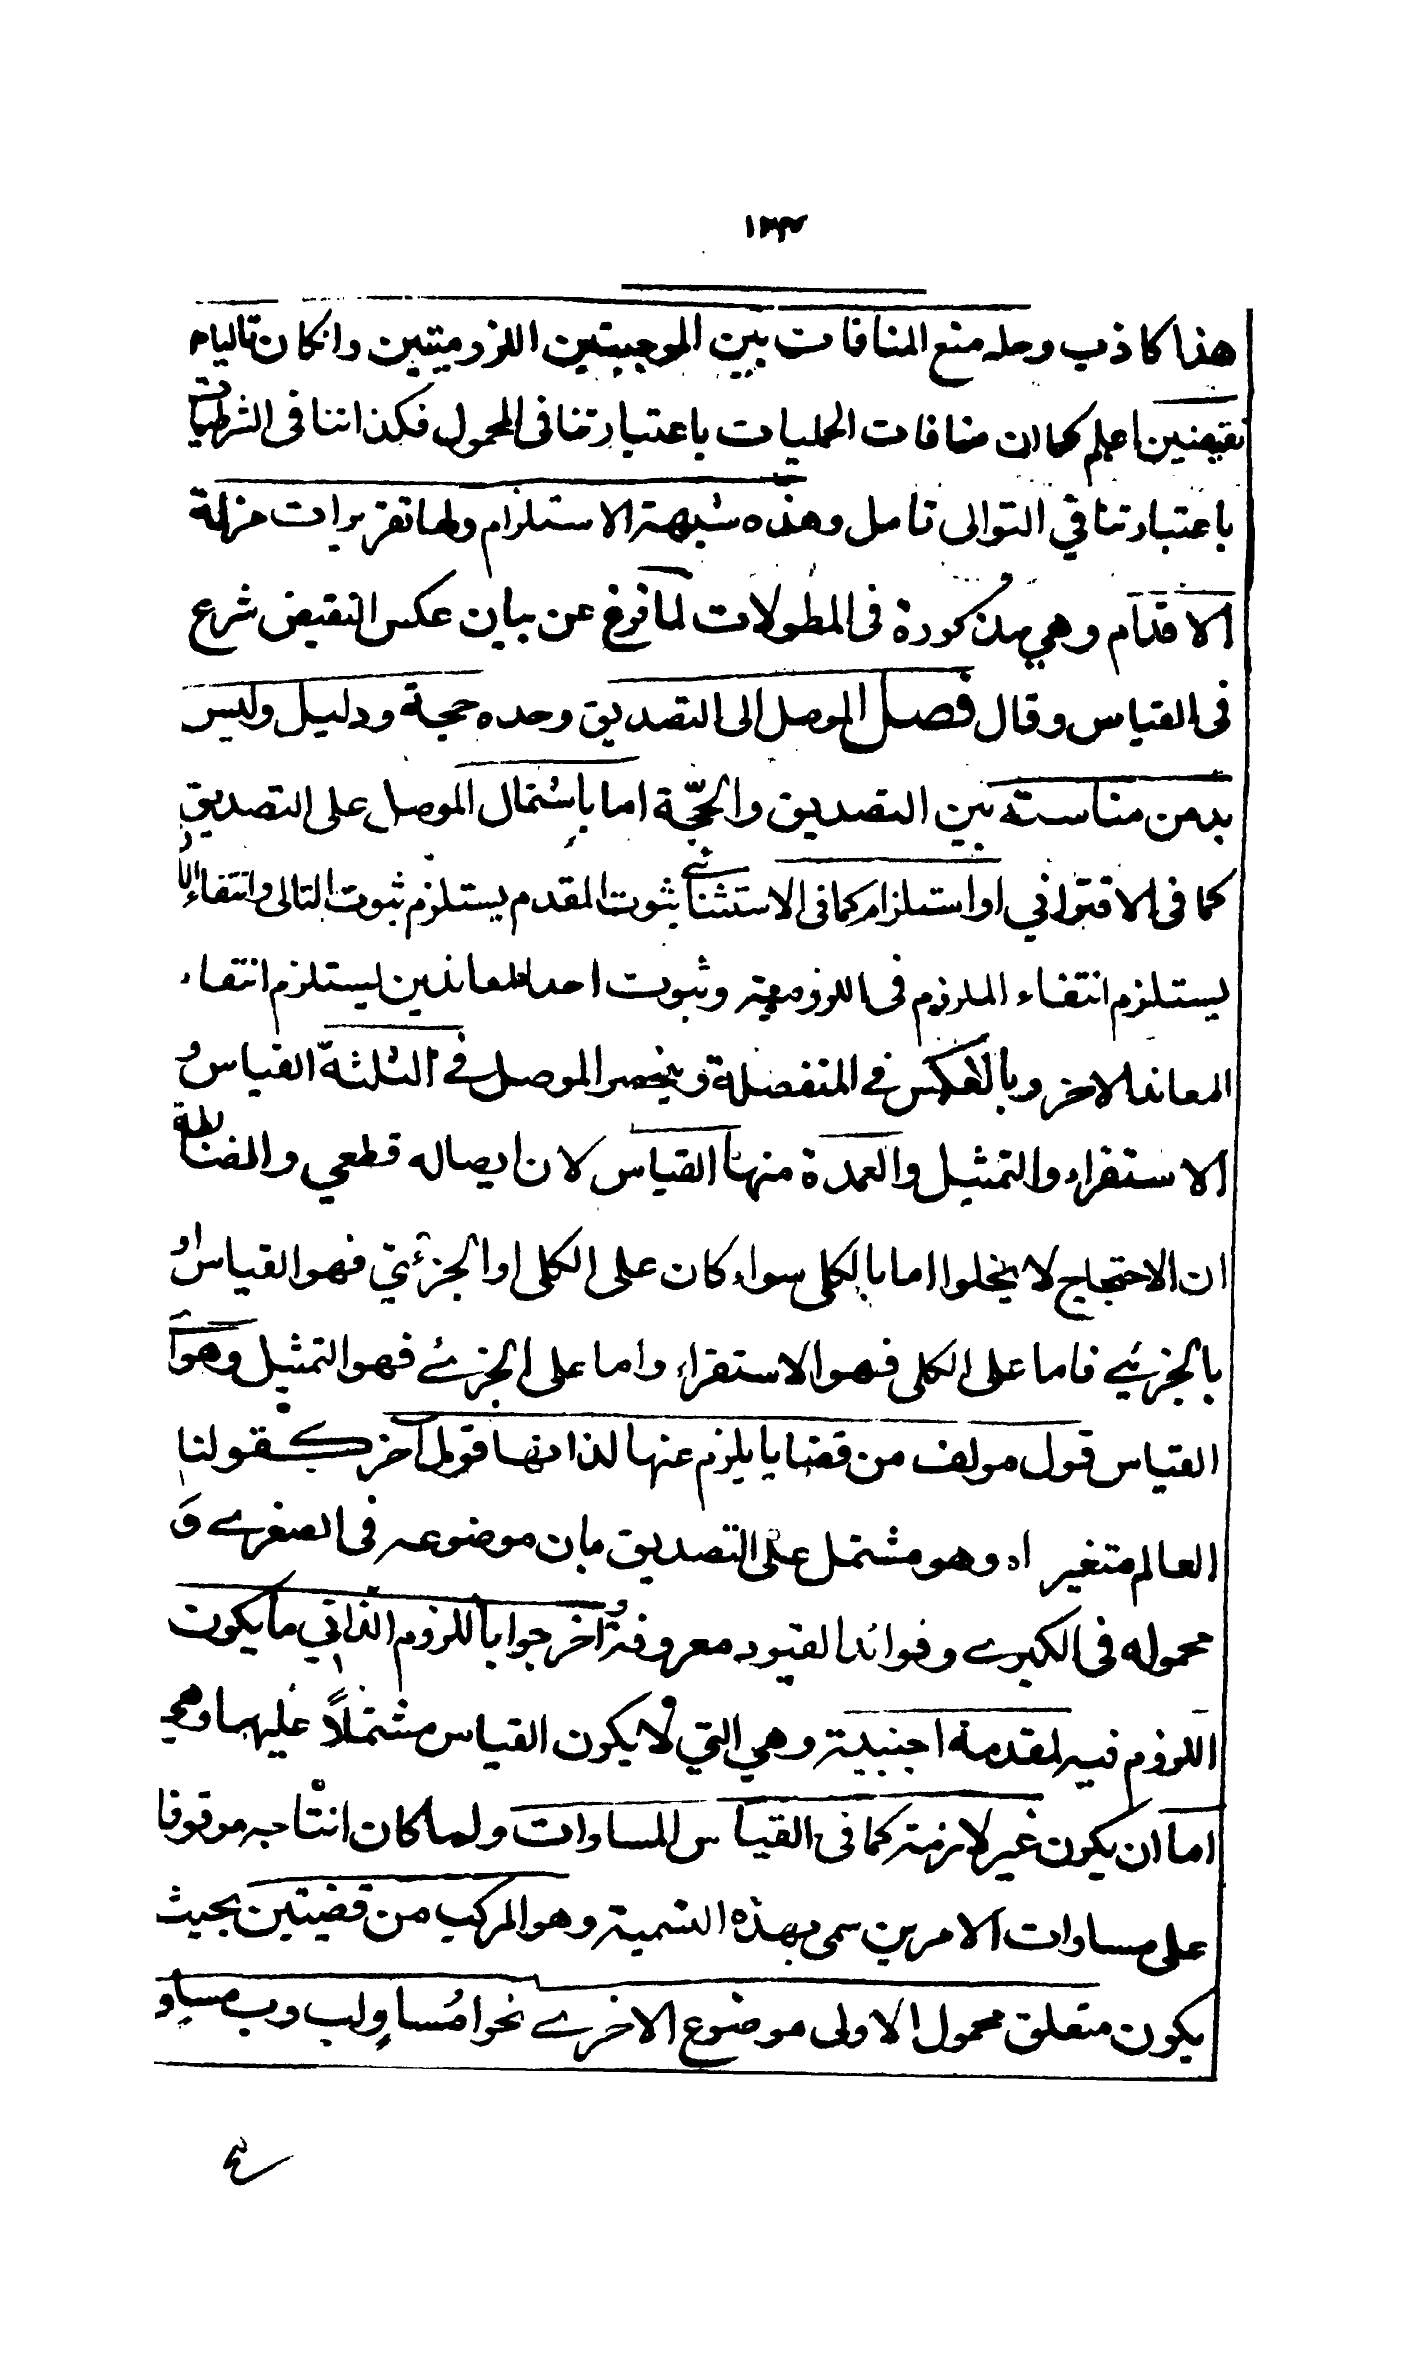 هذا كاذب وحله منع المنافات بين الموجبتين اللزوميتين وانكان تالياهم
نقيضين اعلم كما ان منافات الحمليات باعتبار تنافى المحمول فكذا تنافى الشرطيات
باعتبار تنافي التوالى تامل وهذه شبهة الاستلزام ولها تقريرات مزلة
الاقدام وهي مذكورة فى المطولات لما فرغ عن بيان عكس النقيض شرع
فى القياس وقال فصل الموصل الى التصديق وحده حجة ودليل وليس
بد من مناسبة بين التصديق والحجّة اما باشتمال الموصل على التصديق
كما فى الاقترانى او استلزام كما فى الاستثنائى ثبوت المقدم يستلزم ثبوت التالى وانتفاء اللا
يستلزم انتفاء الملزوم فى اللزومية وثبوت احد المعاندين ليستلزم انتفاء
المعاند الاخر وبالعكس فى المنفصلة وينحصر الموصل فى الثلثة القياس و
الاستقراء والتمثيل والعمدة منها القياس لان ايصاله قطعي والضابطة
ان الاحتجاج لا يخلوا اما بالكلى سواء كان على الكلى او الجزئي فهو القياس او
بالجزئي فاما على الكلى فهو الاستقراء واما على الجزئے فهو التمثيل وهو اے
القياس قول مولف من قضايا يلزم عنها لذاتها قول آخر كقولنا
العالم متغير اه وهو مشتمل على التصديق بان موضوعه فى الصغرے و
محموله فى الكبرے وفوائد القيود معروفة و آخر جوا باللزوم الذاتي ما يكون
اللزوم فيه لمقدمة اجنبية وهي التي لا يكون القياس مشتملاً عليها وهى
اما ان يكون غير لازمة كما فى القياس المساوات ولما كان انتاجه موقوفا
على مساوات الامرين سمى بهذه التسمية وهو المركب من قضيتين بحيث
يكون متعلق محمول الاولى موضوع الاخرے نحو ا مُساوٍ لب وب مساوٍ